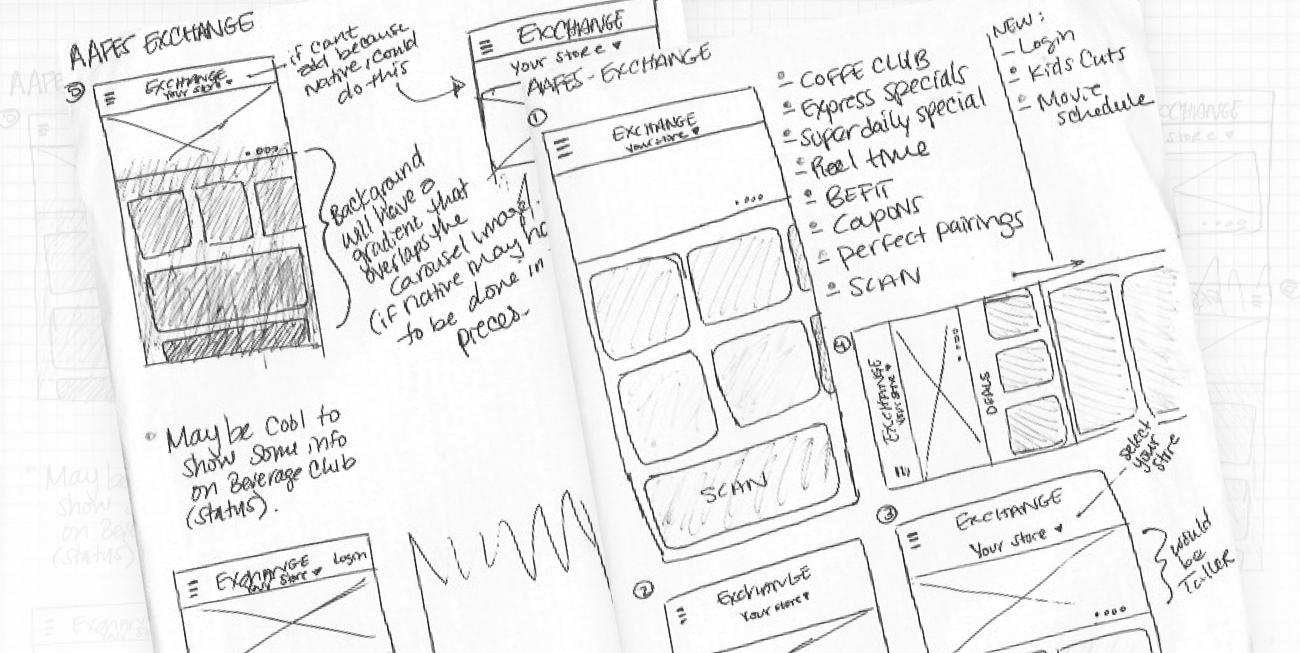 AAFES EXCHANGE
5
EXCHANGE
Your store ♥
if cant
add because
native, could
do this
EXCHANGE
Your store ♥
Background
will have a
gradient that
overlaps the
carousel image.
(if native may ha
to be done in
pieces.
Maybe cool to
show some info
on Beverage Club
(status).
EXCHANGE
Your store ♥
Login
AAFES - EXCHANGE
1
EXCHANGE
Your store ♥
SCAN
COFFE CLUB
Express specials
Super daily special
Reel time
BEFIT
Coupons
perfect pairings
SCAN
NEW:
Login
Kids Cuts
Movie
schedule
4
EXCHANGE
Your store ♥
DEALS
select
your
store
2
EXCHANGE
Your store ♥
3
EXCHANGE
Your store ♥
would
be
Taller